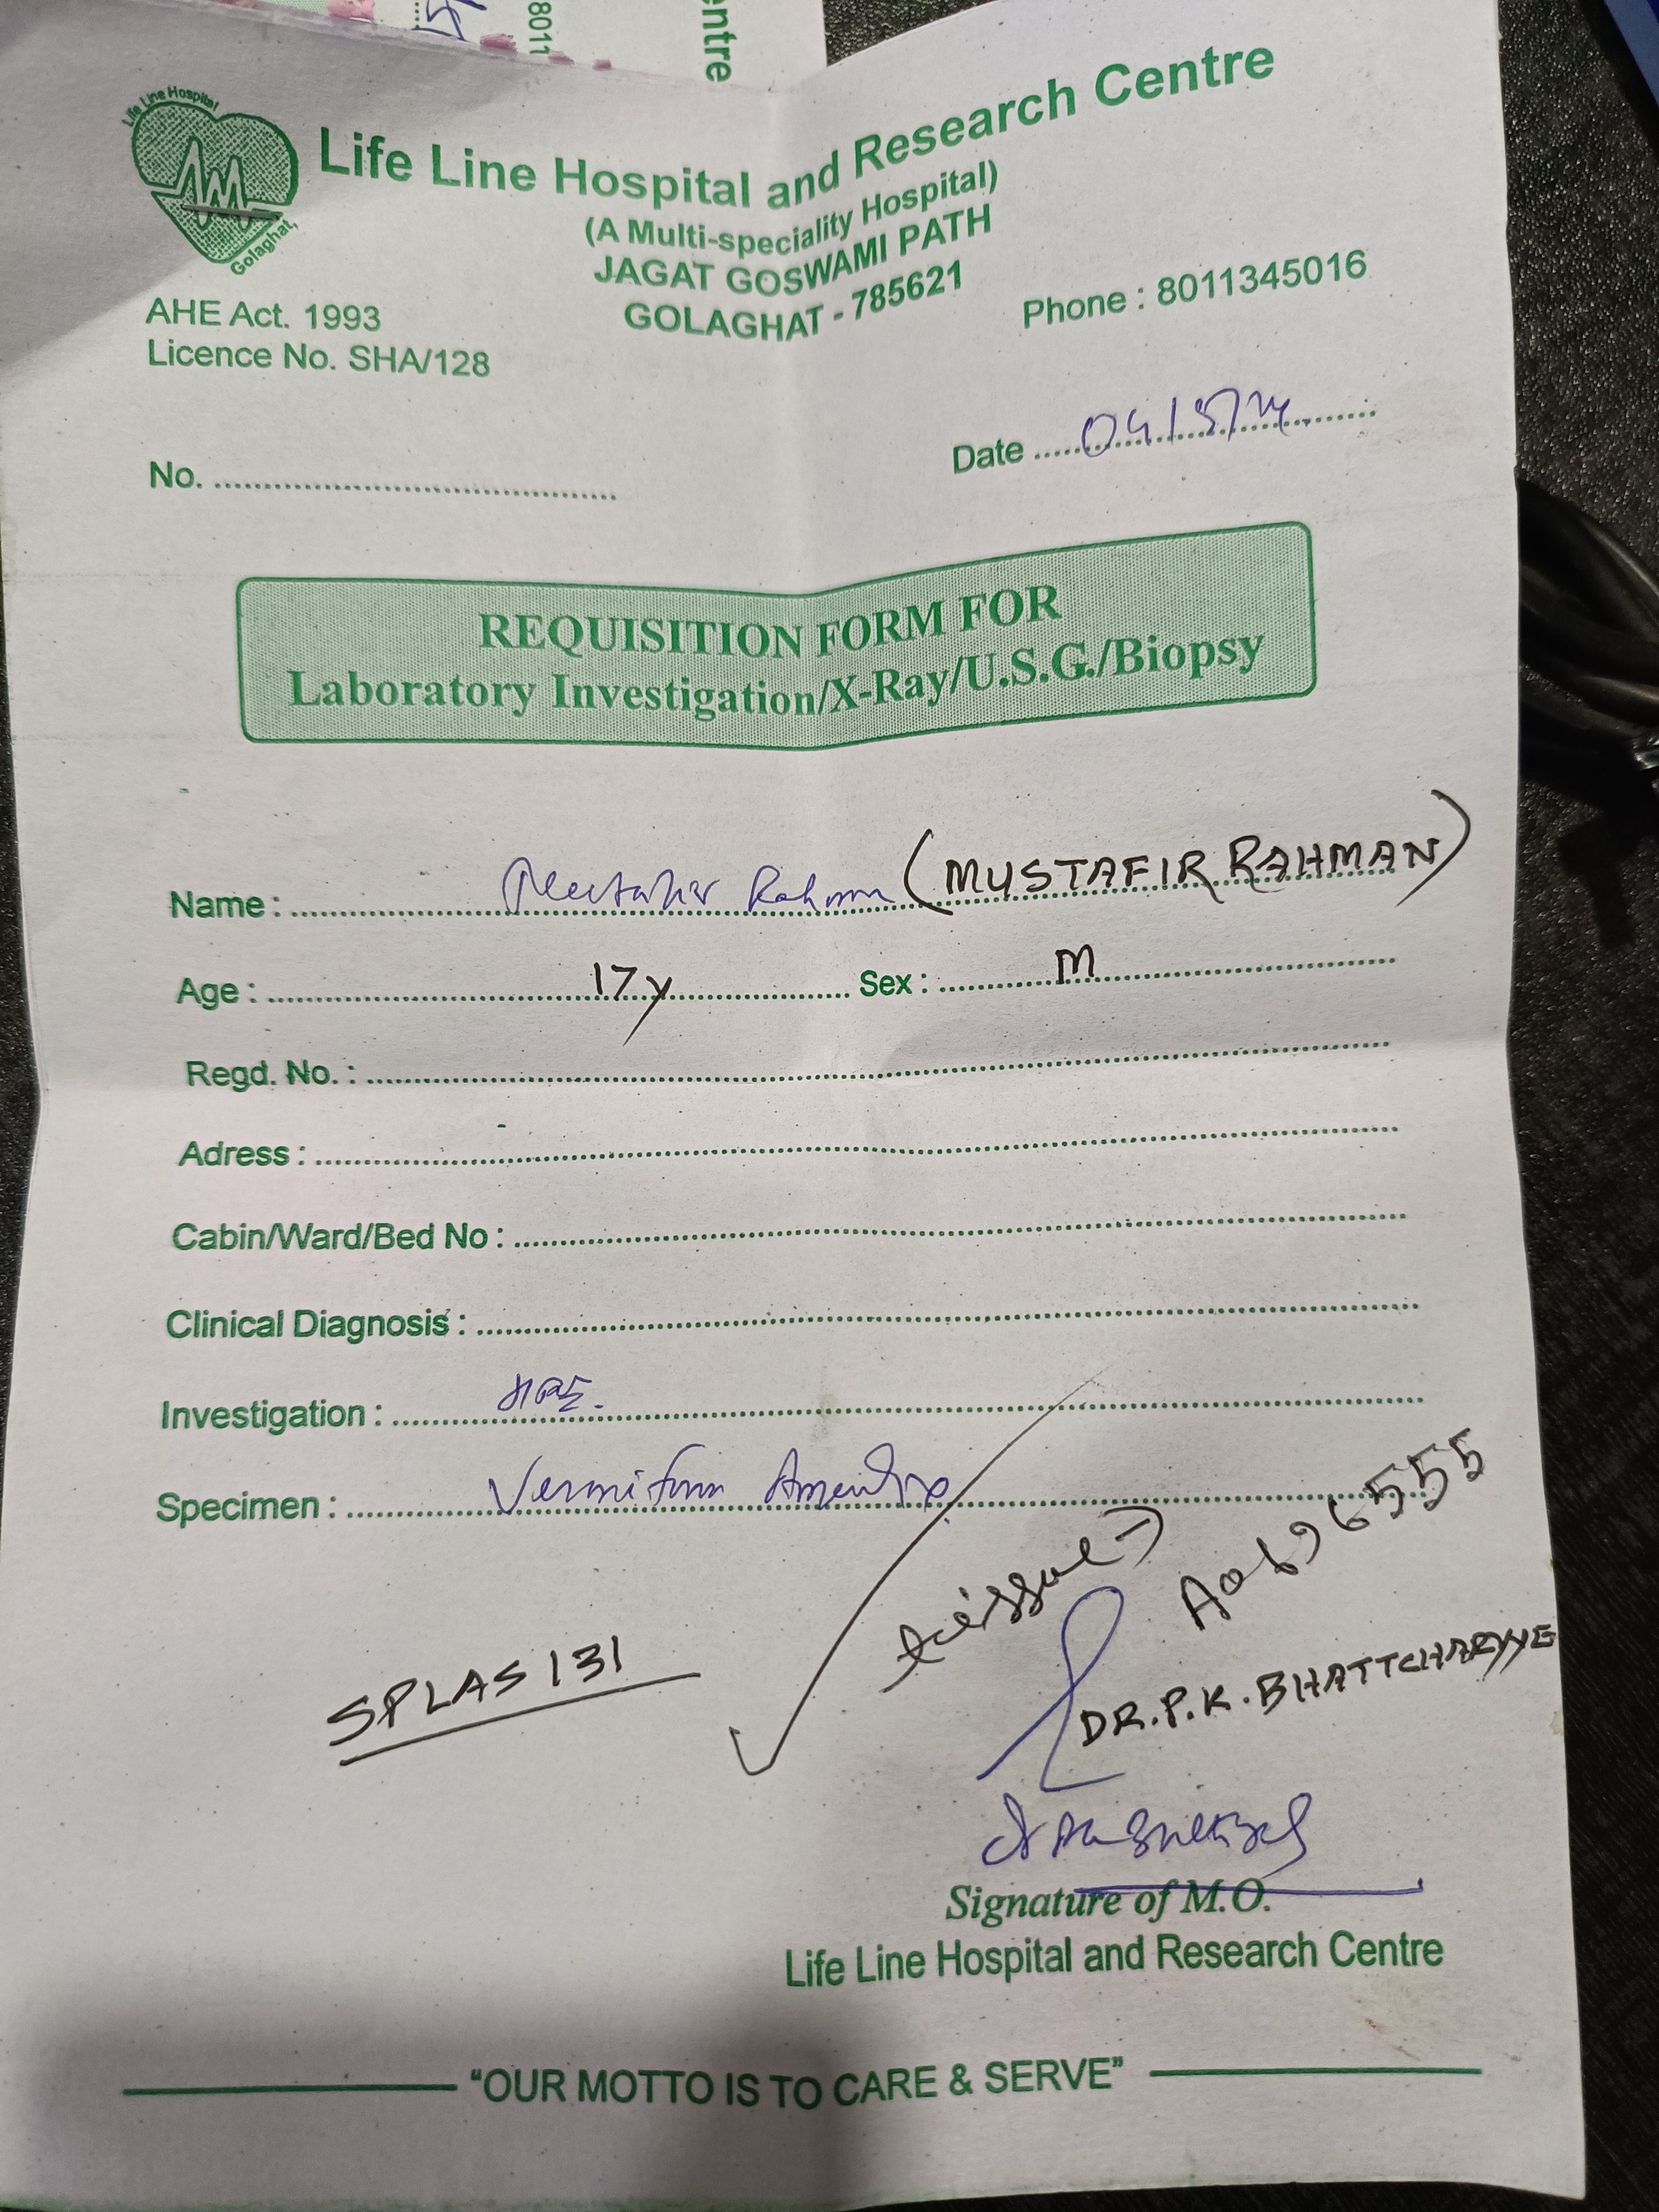 entre
8011
Life Line Hospital
Golaghat,
Life Line Hospital and Research Centre
(A Multi-speciality Hospital)
JAGAT GOSWAMI PATH
GOLAGHAT - 785621
Phone : 8011345016
AHE Act. 1993
Licence No. SHA/128
No.
Date
REQUISITION FORM FOR
Laboratory Investigation/X-Ray/U.S.G./Biopsy
Name : Rahman (MUSTAFIR RAHMAN)
Age : 17y Sex : M
Regd. No. :
Adress :
Cabin/Ward/Bed No :
Clinical Diagnosis :
Investigation :
Specimen : Vermiform Appendix
SPLAS131
DR.P.K.BHATTCHARYYE
Signature of M.O.
Life Line Hospital and Research Centre
"OUR MOTTO IS TO CARE & SERVE"